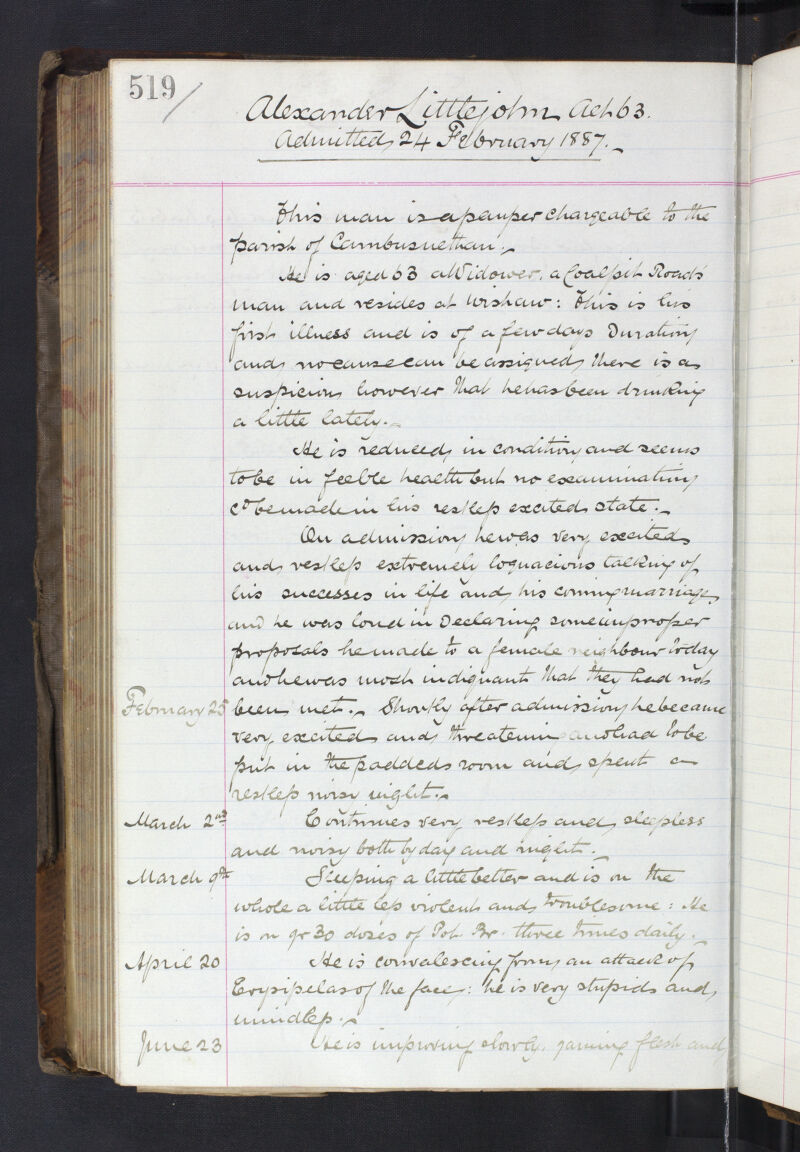 519/
Alexander Littlejohn Aet 63.
Admitted 24 February 1887.
This man is a pauper chargeable to the
parish of Cambusnethan.
He is aged 63 a Widower, a Coalpit Roads
man and resides at Wishaw: This is his
first illness and is of a few days Duration
and no cause can be assigned, there is a
suspicion however that he has been drinking
a little lately.
He is reduced in condition and seems
to be in feeble health but no examination
cd be made in his restless excited state.
On admission he was very excited
and restless extremely loquacious talking of
his successes in life and his coming marriage,
and he was loud in Declaring some improper
proposals he made to a female neighbour today
and he was most indignant that they had not
February 25 been met. Shortly after admission he became
very excited and threatening and had to be
put in the padded room and spent a
restless noisy night.
March 2nd Continues very restless and sleepless
and noisy both by day and night.
March 9th Sleeping a little better and is on the
whole a little less violent and troublesome: He
is on gr 30 dozes of Pot. Br. three times daily.
April 20 He is convalescing from an attack of
Erysipelas of the face: he is very stupid and
mindless.
June 23 He is improving slowly, gaining flesh and